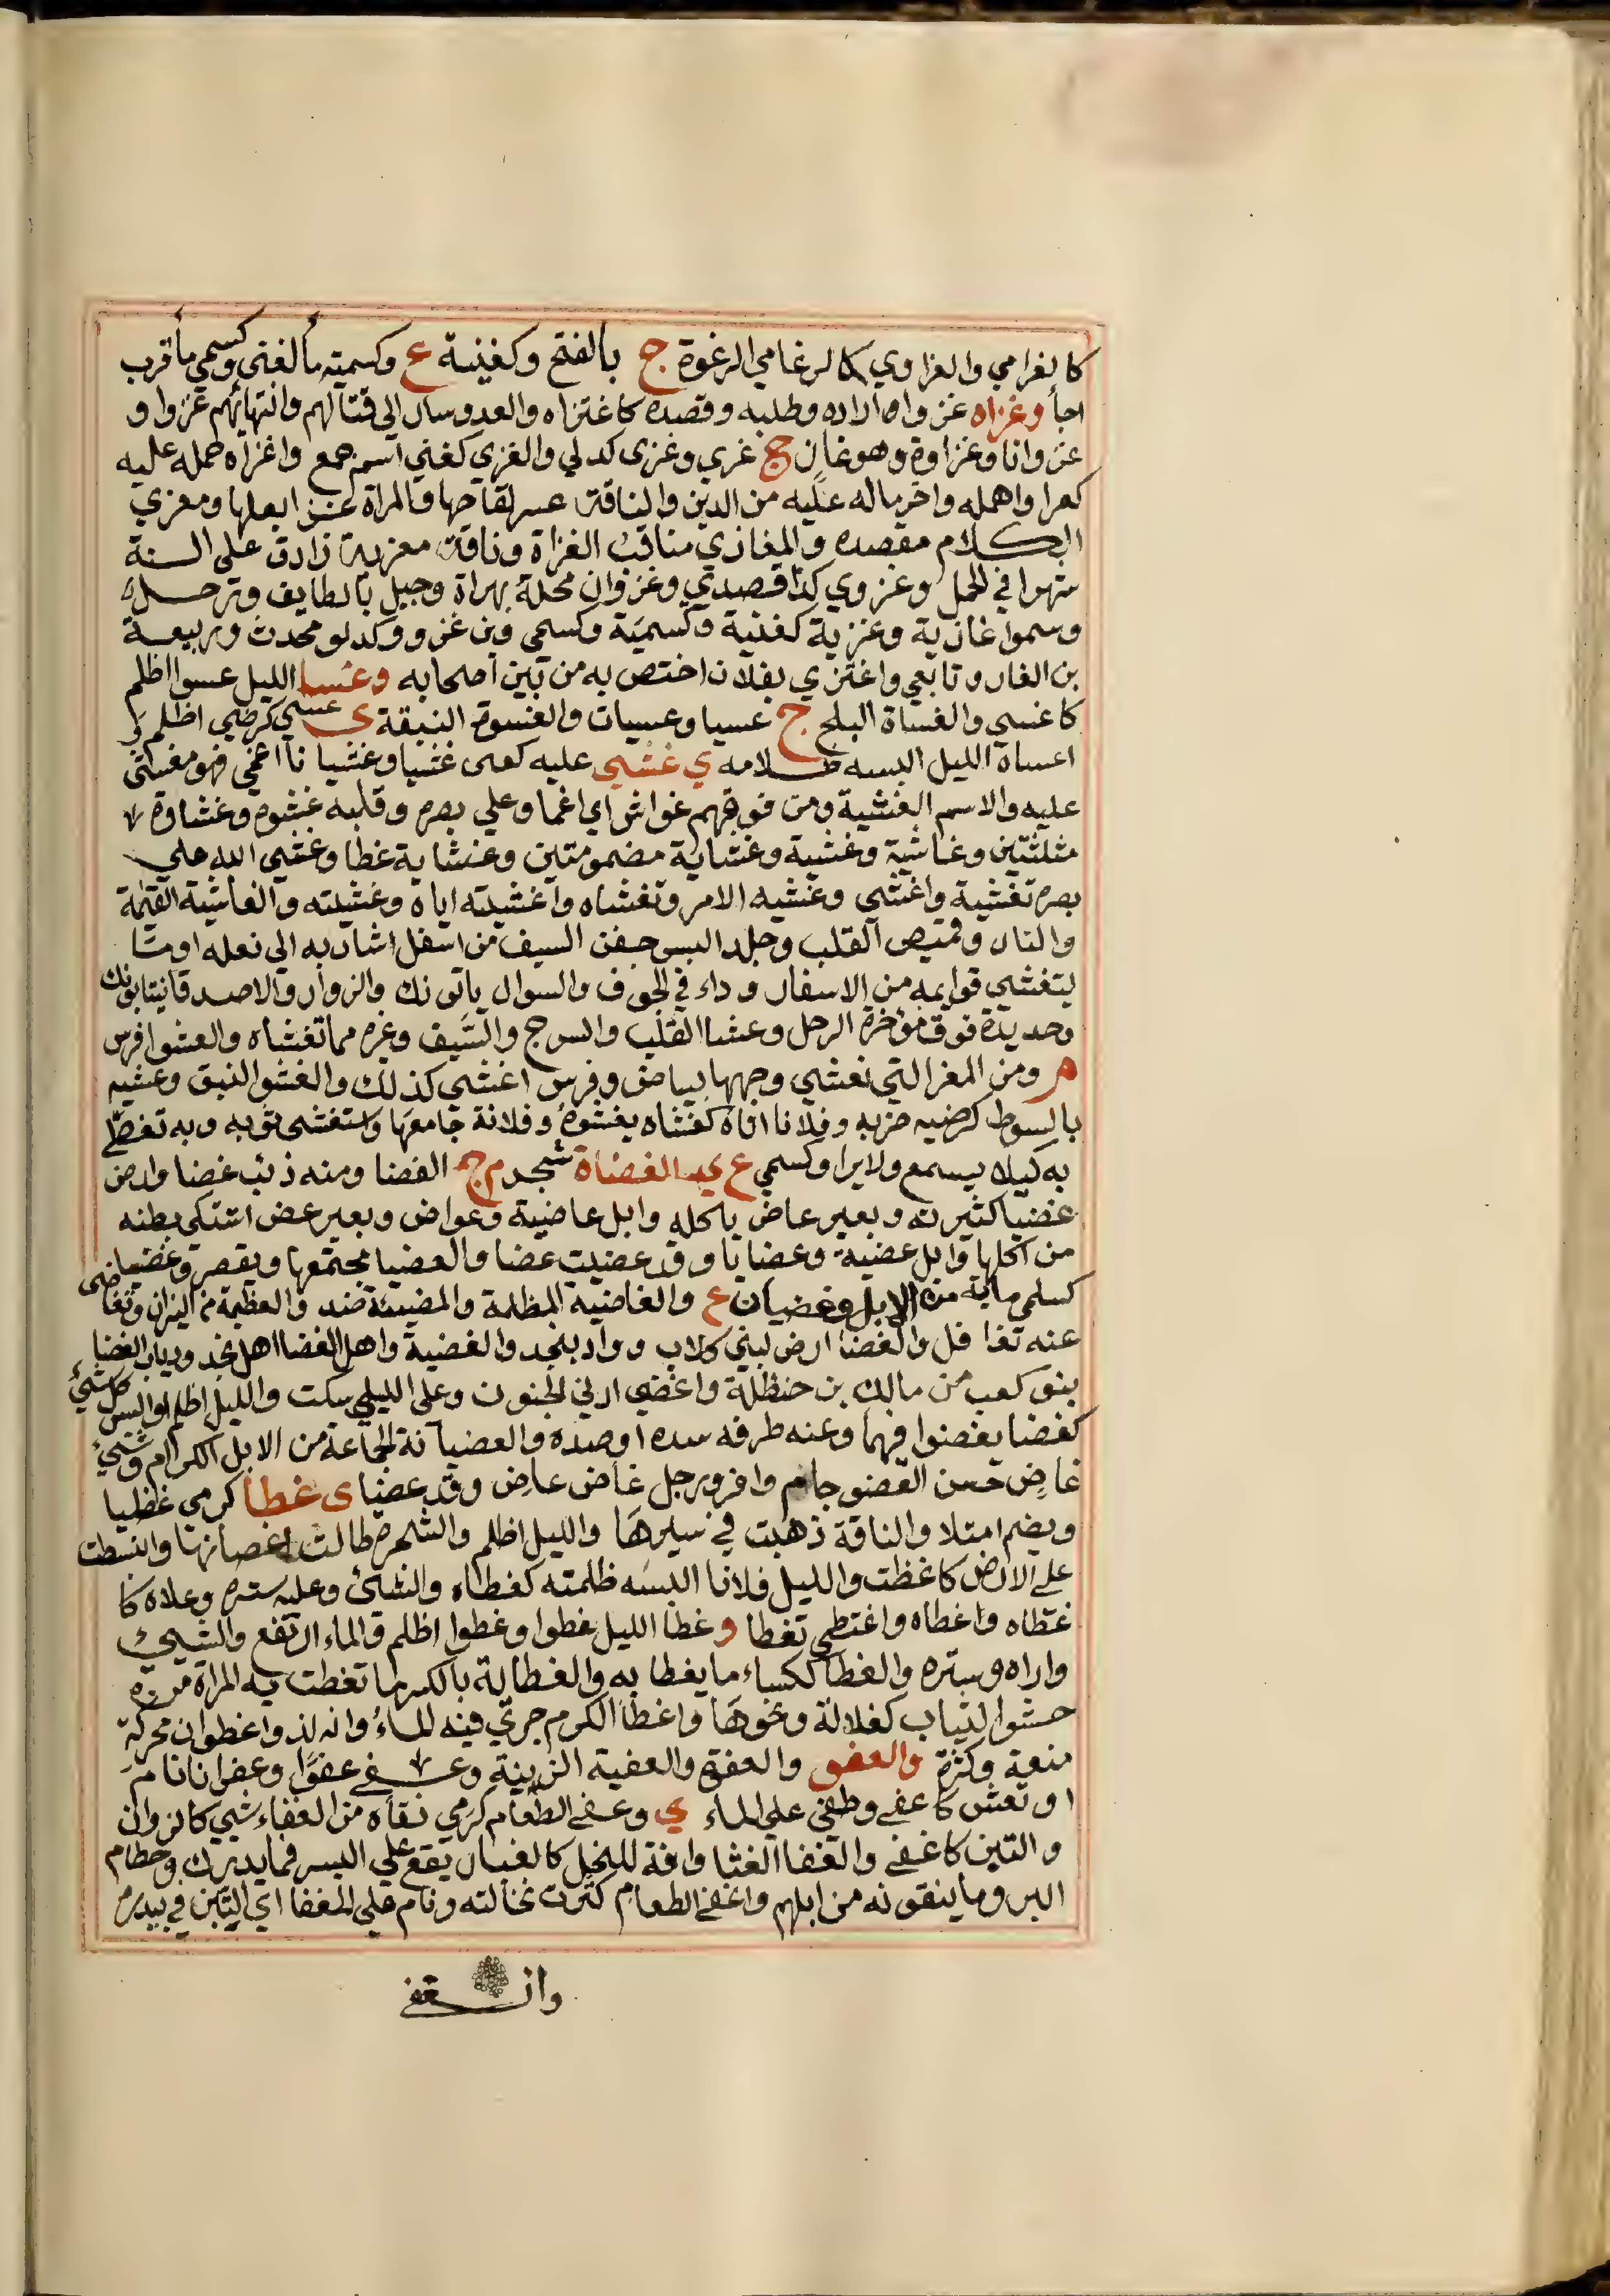 كالغرامي والغراوي كالرغامي الرغوة ج بالفتح وكغنية ع وكسمية ما لغني وكسمي ما قرب
اجأ وغزاه غزوا اراده وطلبه وقصده كاغتزاه والعدو سار الى قتالهم وانتهابهم غزوا و
غزوانا وغزاوة وهو غازن ج غزي وغزى كدلي والغزي كغني اسم جمع واغزاه حمله عليه
كغزا وامهله واخر ماله عليه من الدين والناقة عسر لقاحها والمراة غزا بعلها ومغزي
الكلام مقصده والمغازي مناقب الغزاة وناقة مغزية زادت على السنة
شهرا في الحمل وغزوي كذا قصدي وغزوان محلة بهراة وجبل بالطايف ورجل
وسموا غازية وغزية كغنية وكسمية وكسمي وبن غزو وكدلو محدث وربيعة
بن الغاز وتابعي واغتزي بفلان اختص به من بين اصحابه وغسا الليل غسوا اظلم
كاغسي والغساة البلح ج غسيا وغسيات والغسوة النبقة ى غسي كرضي اظلم و
اغساه الليل البسه ظلامه ي غشي عليه كعنى غشيا وغشيانا اغمي فهو مغشى
عليه والاسم الغشية ومن فوقهم غواش اي اغما وعلي بصره وقلبه غشوة وغشاوة
مثلثتين وغاشية وغشية وغشاية مضمومتين وغشاية غطا وغشي الله علي
بصره تغشية واغشي وغشيه الامر وتغشاه واغشيته اياه وغشيته والغاشية القيمة
والنار وقميص القلب وجلد البس جفن السيف من اسفل شاربه الى نعله او ما
يتغشي قوايمه من الاسفار وداء في الجوف والسوال ياتونك والزوار والاصدقا ينتابونك
وحديدة فوق مؤخرة الرحل وغشا القلب والسرج والسيف وغيره مما تغشاه والغشوا فرس
م ومن المعز التي تغشي وجهها بياض وفرس اغشي كذلك والغشو النبق وغشيه
بالسوط كرضيه ضربه وفلانا اتاه كغشاه يغشوه وفلانة جامعها واستغشى ثوبه وبه تغطي
به كيلا يسمع ولا يرا وكسمي ع ي الغضاة شجر م ج الغضا ومنه ذئب غضا وارض
غضيا كثيرته وبعير غاض ياكله وابل غاضية وغواض وبعير غض اشتكى بطنه
من اكلها وابل غضية وغضايا وقد غضيت غضا والغضيا مجتمعها ويقصر وغضيا
كسلمى ماية من الابل وغضيان ع والغاضية المظلمة والمضيئة ضد والعظيمة من النيران وتغاضى
عنه تغافل والغضا ارض لبني كلاب وواد بنجد والغضية واهل الغضا اهل نجد وذياب الغضا
بنو كعب من مالك بن حنظلة واغضي ادني الجفون وعلى الليلي سكت والليل اظلم او البس كل شيء
كغضا يغضوا فيهما وعنه طرفه سده او صده والغضيانة الجماعة من الابل الكرام وشيء
غاض حسن الغضو جام وافر ورجل غاض عاض وقد غضا ى غطا كرمي غظيا
ويضم امتلا والناقة ذهبت في سيرها والليل اظلم والشجرة طالت اغصانها وانبسطت
على الارض كاغظت والليل فلانا البسه ظلمته كغطاه والشئ وعليه ستره وعلاه كا
غتطاه واغطاه واغتطي تغطا و غطا الليل غطوا وغطوا اظلم والماء ارتفع والشيئ
واراه وستره والغطا ككساء ما يغطا به والغطاية بالكسر ما تغطت به المراة من
حشو الثياب كغلالة ونحوها واغطا الكرم جرى فيه الماء وانه لذو اغطوان محركة
منعة وكثرة والغفو والغفوة والغفية الزبية وغفى غفوا وغفوانا نام
او نعس كاغفى وطفي على الماء ي وغفى الطعام كرمي نقاه من الغفاء شي كالزوان
والتبن كاغفى والغفا الغثا وافة للنخل كالغبار يقع علي البسر فما يدرك وحطام
البر وما ينقونه من ابلهم واغفى الطعام كثرت نخالته ونام علي المغفا اي التبن في بيدره
وانغفى